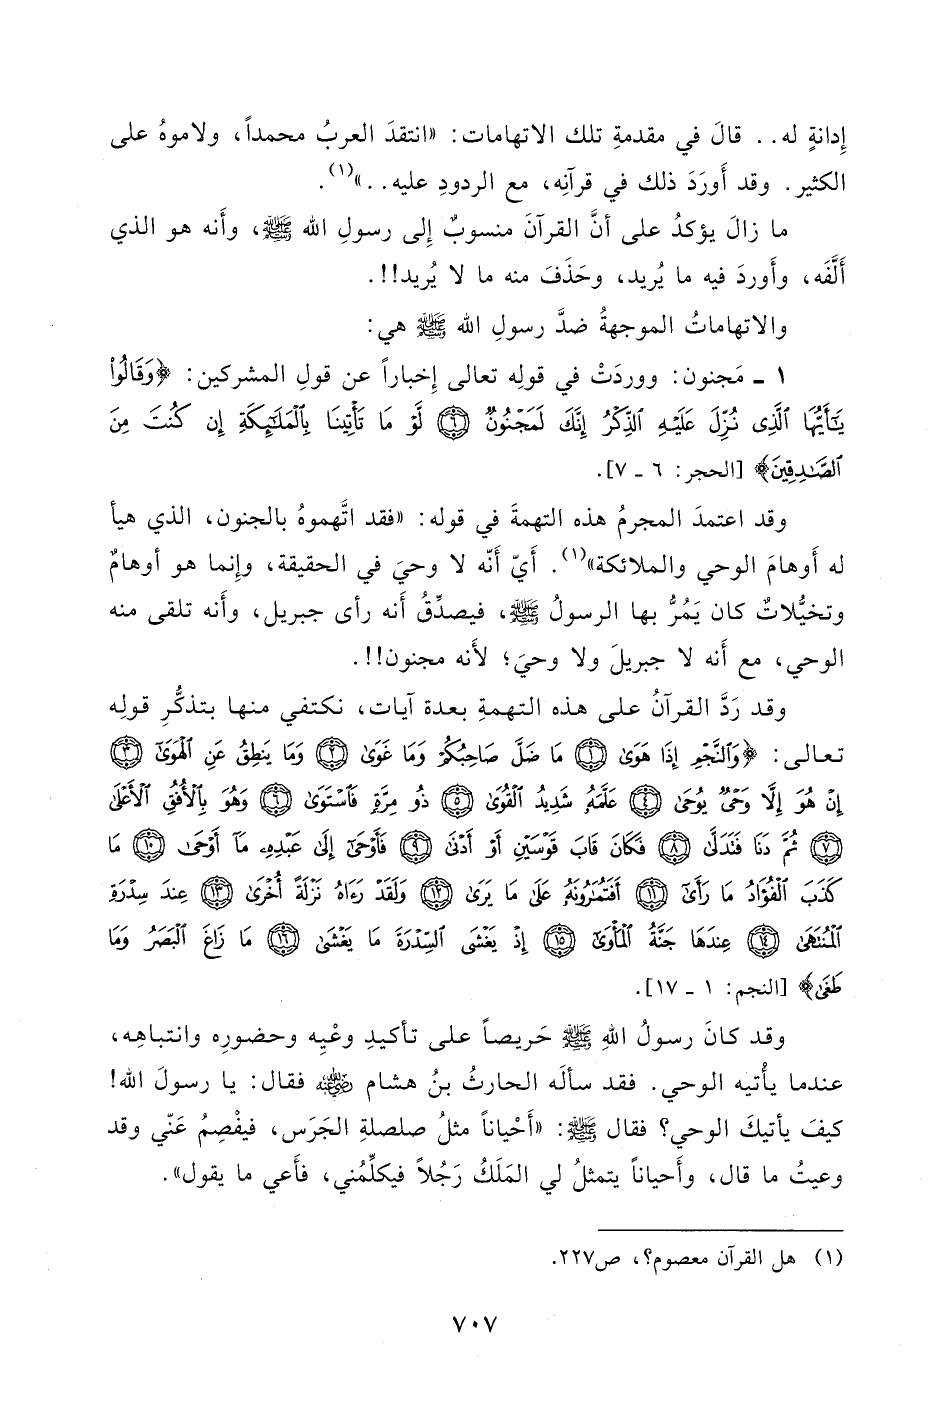 إِدانةٍ له.. قالَ في مقدمةِ تلك الاتهامات: «انتقدَ العربُ محمداً، ولاموهُ على
الكثير. وقد أَورَدَ ذلك في قرآنِه، مع الردودِ عليه..»(١).
ما زالَ يؤكدُ على أنَّ القرآنَ منسوبٌ إِلى رسولِ الله ﷺ، وأَنه هو الذي
أَلَّفَه، وأَوردَ فيه ما يُريد، وحَذَفَ منه ما لا يُريد!!.
والاتهاماتُ الموجهةُ ضدَّ رسولِ الله ﷺ هي:
١ ـ مَجنون: ووردَتْ في قولِه تعالى إِخباراً عن قولِ المشركين: ﴿وَقَالُوا۟
يَـٰٓأَيُّهَا ٱلَّذِى نُزِّلَ عَلَيْهِ ٱلذِّكْرُ إِنَّكَ لَمَجْنُونٌ ۝٦ لَّوْ مَا تَأْتِينَا بِٱلْمَلَـٰٓئِكَةِ إِن كُنتَ مِنَ
ٱلصَّـٰدِقِينَ﴾ [الحجر: ٦ ـ ٧].
وقد اعتمدَ المجرمُ هذه التهمةَ في قوله: «فقد اتَّهموهُ بالجنون، الذي هيأ
له أَوهامَ الوحي والملائكة»(١). أَيّ أَنّه لا وحيَ في الحقيقة، وإِنما هو أوهامٌ
وتخيُّلاتٌ كان يَمُرُّ بها الرسولُ ﷺ، فيصدِّقُ أَنه رأى جبريل، وأَنه تلقى منه
الوحي، مع أَنه لا جبريلَ ولا وحيَ؛ لأَنه مجنون!!.
وقد رَدَّ القرآنُ على هذه التهمةِ بعدة آيات، نكتفي منها بتذكُّرِ قولِه
تعالى: ﴿وَٱلنَّجْمِ إِذَا هَوَىٰ ۝١ مَا ضَلَّ صَاحِبُكُمْ وَمَا غَوَىٰ ۝٢ وَمَا يَنطِقُ عَنِ ٱلْهَوَىٰٓ ۝٣
إِنْ هُوَ إِلَّا وَحْىٌ يُوحَىٰ ۝٤ عَلَّمَهُۥ شَدِيدُ ٱلْقُوَىٰ ۝٥ ذُو مِرَّةٍ فَٱسْتَوَىٰ ۝٦ وَهُوَ بِٱلْأُفُقِ ٱلْأَعْلَىٰ
۝٧ ثُمَّ دَنَا فَتَدَلَّىٰ ۝٨ فَكَانَ قَابَ قَوْسَيْنِ أَوْ أَدْنَىٰ ۝٩ فَأَوْحَىٰٓ إِلَىٰ عَبْدِهِۦ مَآ أَوْحَىٰ ۝١٠ مَا
كَذَبَ ٱلْفُؤَادُ مَا رَأَىٰٓ ۝١١ أَفَتُمَـٰرُونَهُۥ عَلَىٰ مَا يَرَىٰ ۝١٢ وَلَقَدْ رَءَاهُ نَزْلَةً أُخْرَىٰ ۝١٣ عِندَ سِدْرَةِ
ٱلْمُنتَهَىٰ ۝١٤ عِندَهَا جَنَّةُ ٱلْمَأْوَىٰٓ ۝١٥ إِذْ يَغْشَى ٱلسِّدْرَةَ مَا يَغْشَىٰ ۝١٦ مَا زَاغَ ٱلْبَصَرُ وَمَا
طَغَىٰ﴾ [النجم: ١ ـ ١٧].
وقد كانَ رسولُ اللهِ ﷺ حَريصاً على تأكيدِ وعْيِه وحضورِه وانتباهِه،
عندما يأْتيه الوحي. فقد سأَلَه الحارثُ بنُ هشام رضي الله عنه فقال: يا رسولَ الله!
كيفَ يأتيكَ الوحي؟ فقال ﷺ: «أَحْياناً مثلُ صلصلةِ الجَرَس، فيفْصِمُ عَنّي وقد
وعيتُ ما قال، وأَحياناً يتمثلُ لي المَلَكُ رَجُلاً فيكلِّمُني، فأَعي ما يقول».
(١) هل القرآن معصوم؟، ص٢٢٧.
٧٠٧